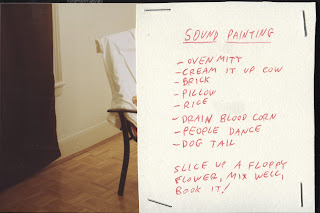 SOUND PAINTING
- OVEN MITT
- CREAM IT UP COW
- BRICK
- PILLOW
- RICE
- DRAIN BLOOD CORN
- PEOPLE DANCE
- DOG TAIL
SLICE UP A FLOPPY
FLOWER, MIX WELL,
BOOK IT!